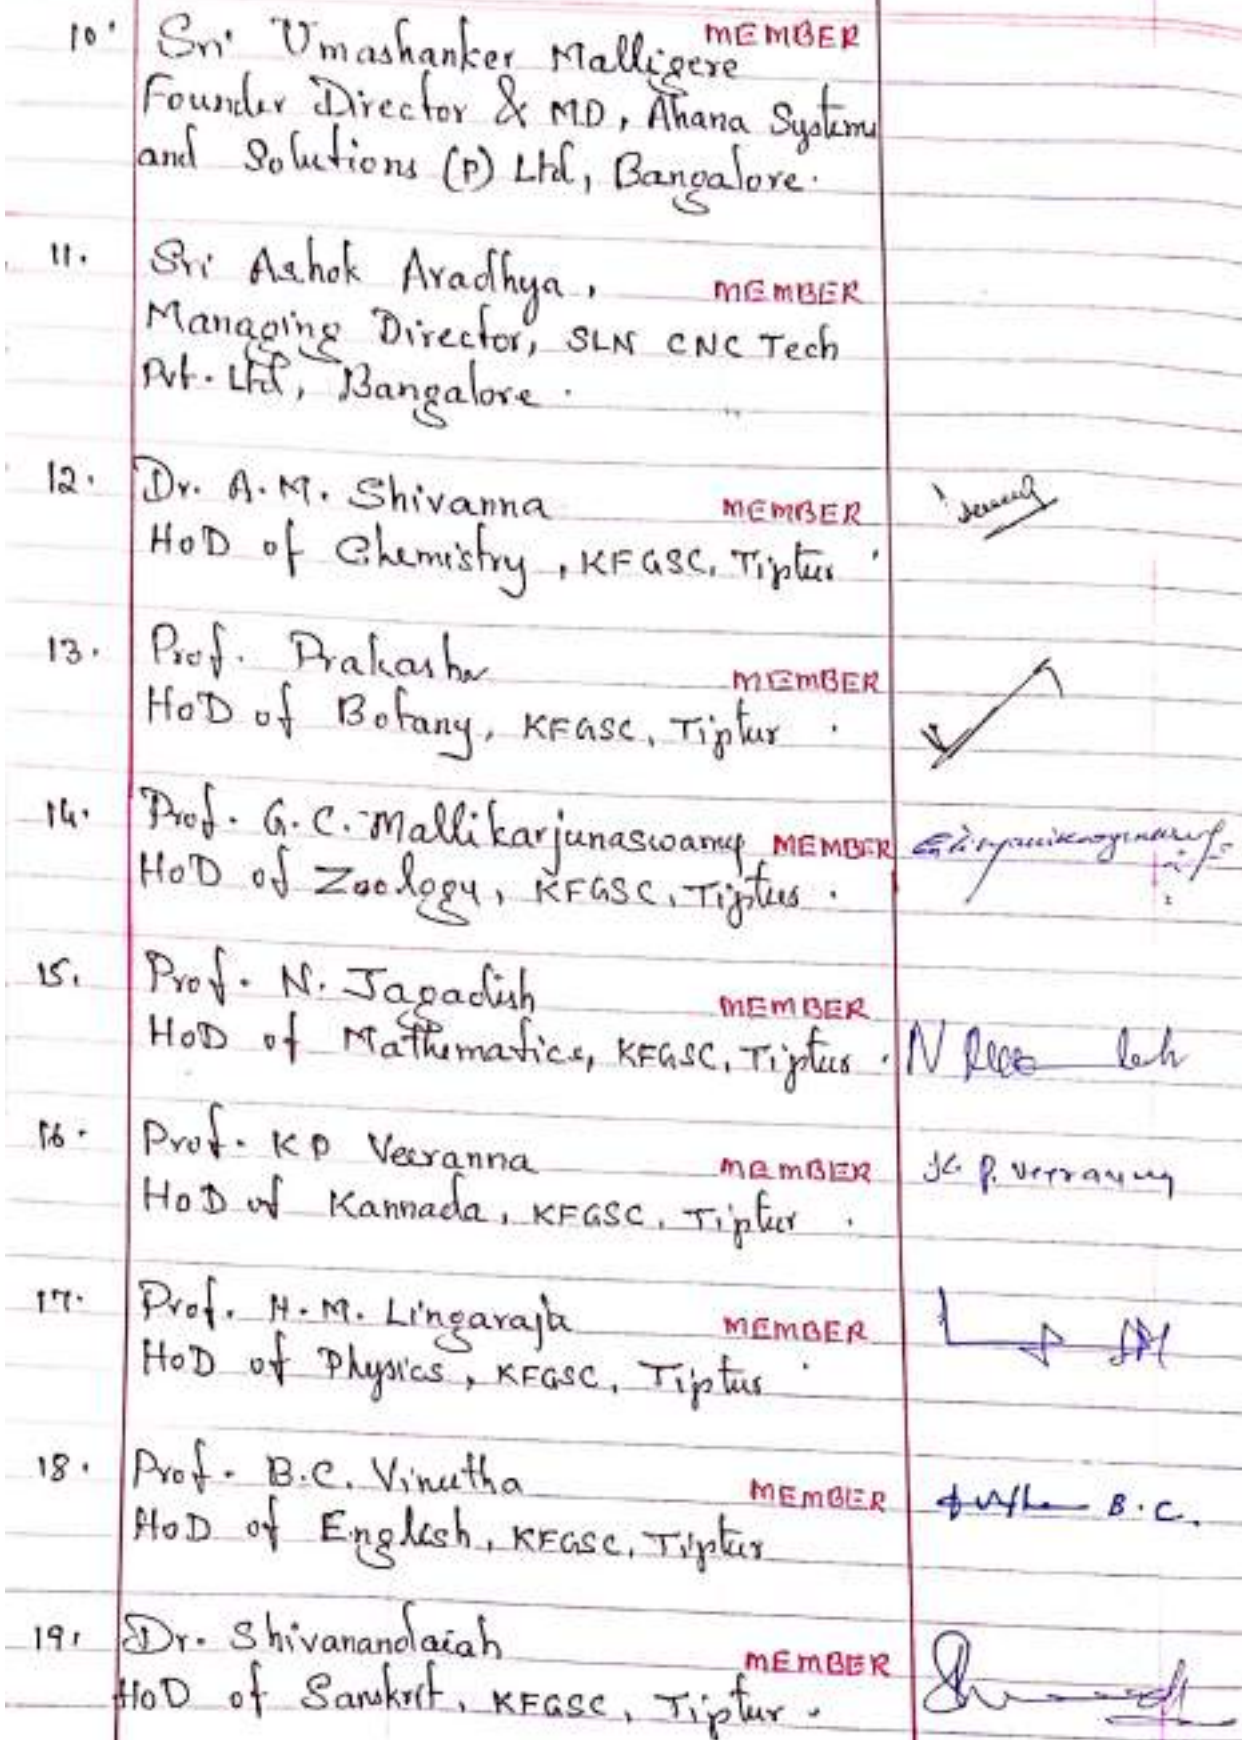 10. Sri Umashanker Malligere MEMBER
Founder Director & MD, Ahana Systems
and Solutions (P) Ltd, Bangalore.
11. Sri Ashok Aradhya, MEMBER
Managing Director, SLN CNC Tech
Pvt. Ltd, Bangalore.
12. Dr. A.M. Shivanna MEMBER
HoD of Chemistry, KFGSC, Tiptur.
13. Prof. Prakasha MEMBER
HoD of Botany, KFGSC, Tiptur.
14. Prof. G.C. Mallikarjunaswamy MEMBER
HoD of Zoology, KFGSC, Tiptur.
15. Prof. N. Jagadish MEMBER
HoD of Mathematics, KFGSC, Tiptur. N
16. Prof. KP Veeranna MEMBER K. P. Veeranna
HoD of Kannada, KFGSC, Tiptur.
17. Prof. H.M. Lingaraja MEMBER
HoD of Physics, KFGSC, Tiptur.
18. Prof. B.C. Vinutha MEMBER B.C.
HoD of English, KFGSC, Tiptur
19. Dr. Shivanandaiah MEMBER
HoD of Sanskrit, KFGSC, Tiptur.